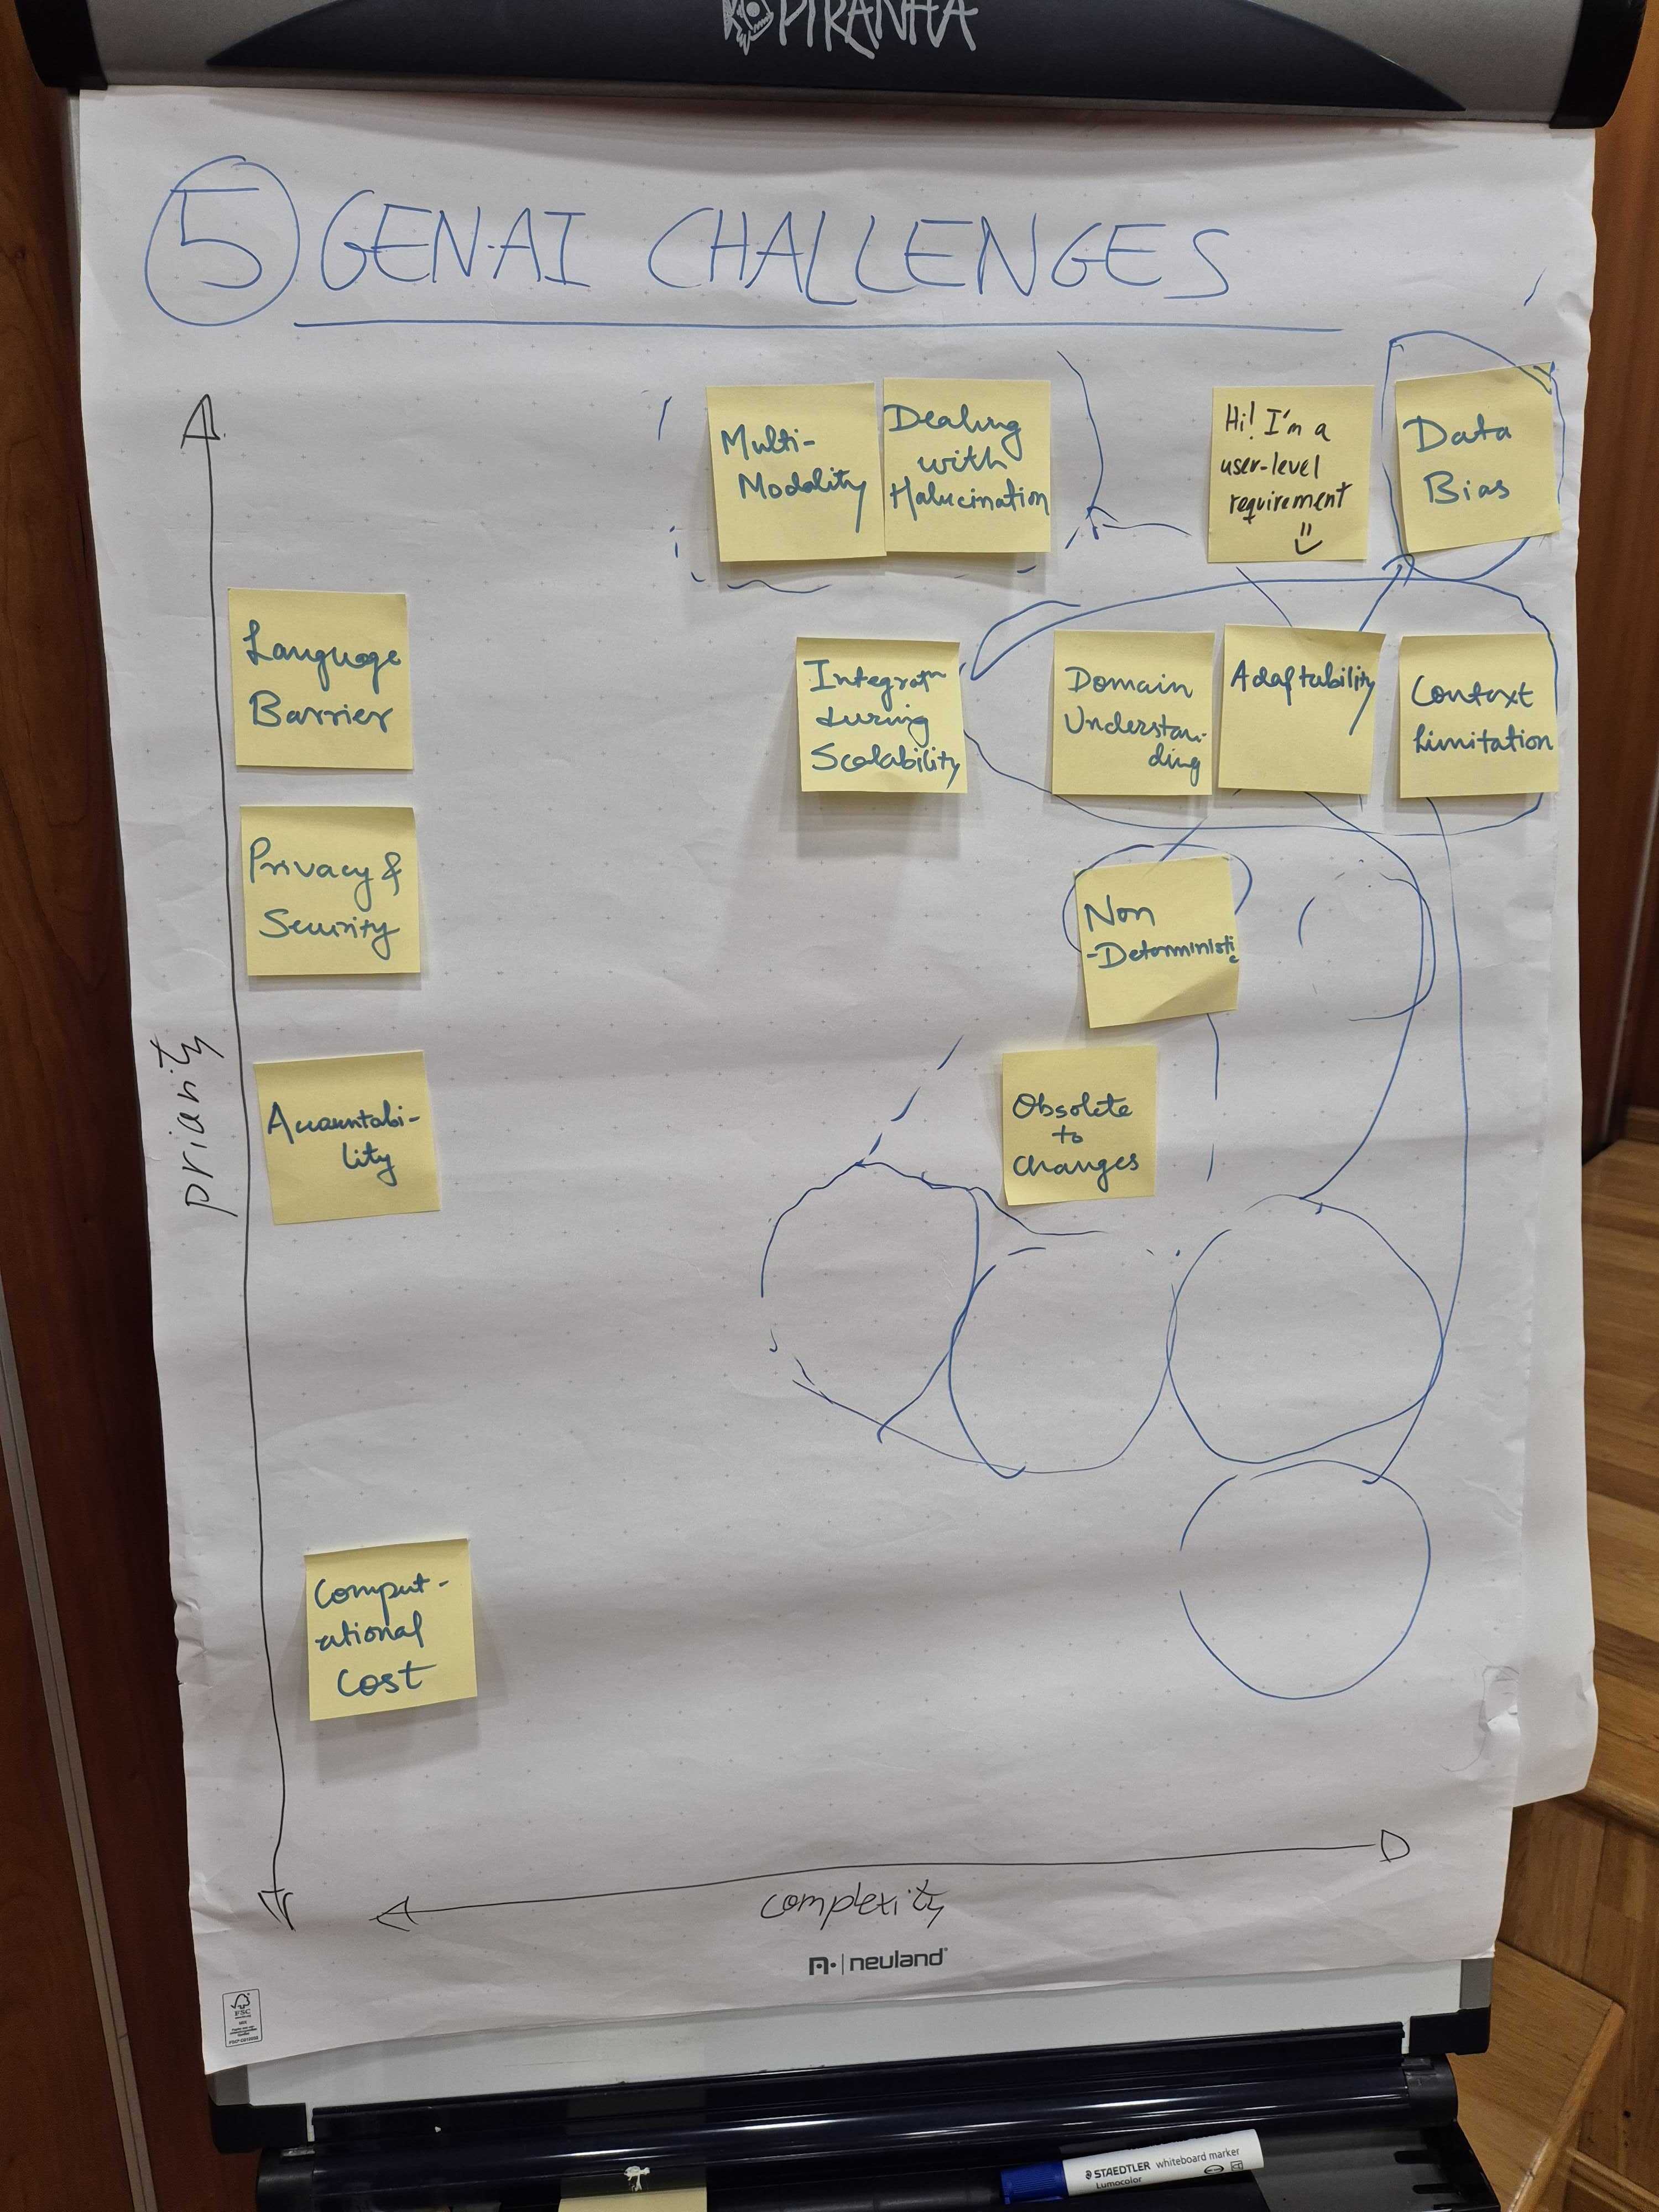 PIRANHA
5 GEN.AI CHALLENGES
Multi-
Modality
Dealing
with
Halucination
Hi! I'm a
user-level
requirement
Data
Bias
Language
Barrier
Integratn
during
Scalability
Domain
Understan-
ding
Adaptability
Context
Limitation
Privacy &
Security
Non
-Deterministic
Accountabi-
lity
Obsolete
to
changes
priority
Comput-
ational
Cost
complexity
neuland
FSC
STAEDTLER whiteboard marker
Lumocolor